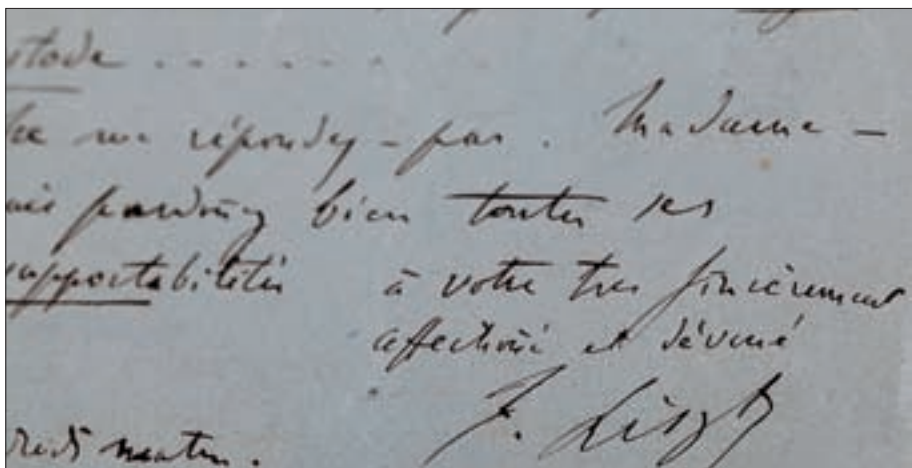 stode . . . . . .
ne me répondez-pas. Madame –
mais pardonnez bien toutes ses
supportabilités à votre tres sincèrement
affectioné et dévoué
F. Liszt
redi matin.